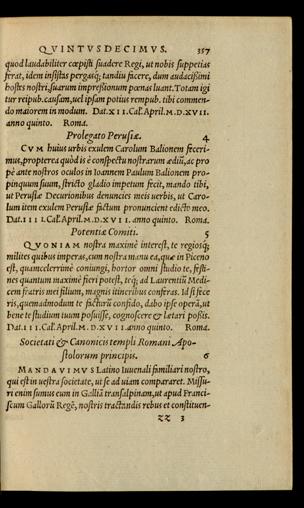 QVINTVS DECIMVS. 357
quod laudabiliter cœpisti suadere Regi, ut nobis suppetias
ferat, idem insistas pergasq; tandiu facere, dum audacissimi
hostes nostri, suarum impressionum pœnas luant. Totam igi
tur reipub. causam, uel ipsam potius rempub. tibi commen-
do maiorem in modum. Dat. XII. Cal. April. M.D.XVII.
anno quinto. Roma.
Prolegato Perusiæ. 4
CVM huius urbis exulem Carolum Balionem feceri-
mus, propterea quòd is è conspectu nostrarum ædiũ, ac pro
pè ante nostros oculos in Ioannem Paulum Balionem pro-
pinquum suum, stricto gladio impetum fecit, mando tibi,
ut Perusiæ Decurionibus denuncies meis uerbis, ut Caro-
lum item exulem Perusiæ factum pronuncient edicto meo.
Dat. III I. Cal. April. M.D.XVII. anno quinto. Roma.
Potentiæ Comiti. 5
QVONIAM nostra maximè interest, te regiosq;
milites quibus imperas, cum nostra manu ea, quæ in Piceno
est, quamcelerrimè coniungi, hortor omni studio te, festi-
nes quantum maximè fieri potest, teq; ad Laurentiũ Medi-
cem fratris mei filium, magnis itineribus conferas. Id si fece
ris, quemadmodum te facturũ confido, dabo ipse operã, ut
bene te studium tuum posuisse, cognoscere & lætari possis.
Dat. III. Cal. April. M.D.XVII. anno quinto. Roma.
Societati & Canonicis templi Romani Apo-
stolorum principis. 6
MANDAVIMVS Latino Iuuenali familiari nostro,
qui est in uestra societate, ut se ad uiam compararet. Missu-
ri enim sumus eum in Galliã transalpinam, ut apud Franci-
scum Gallorũ Regẽ, nostris tractandis rebus et constituen-
ZZ 3